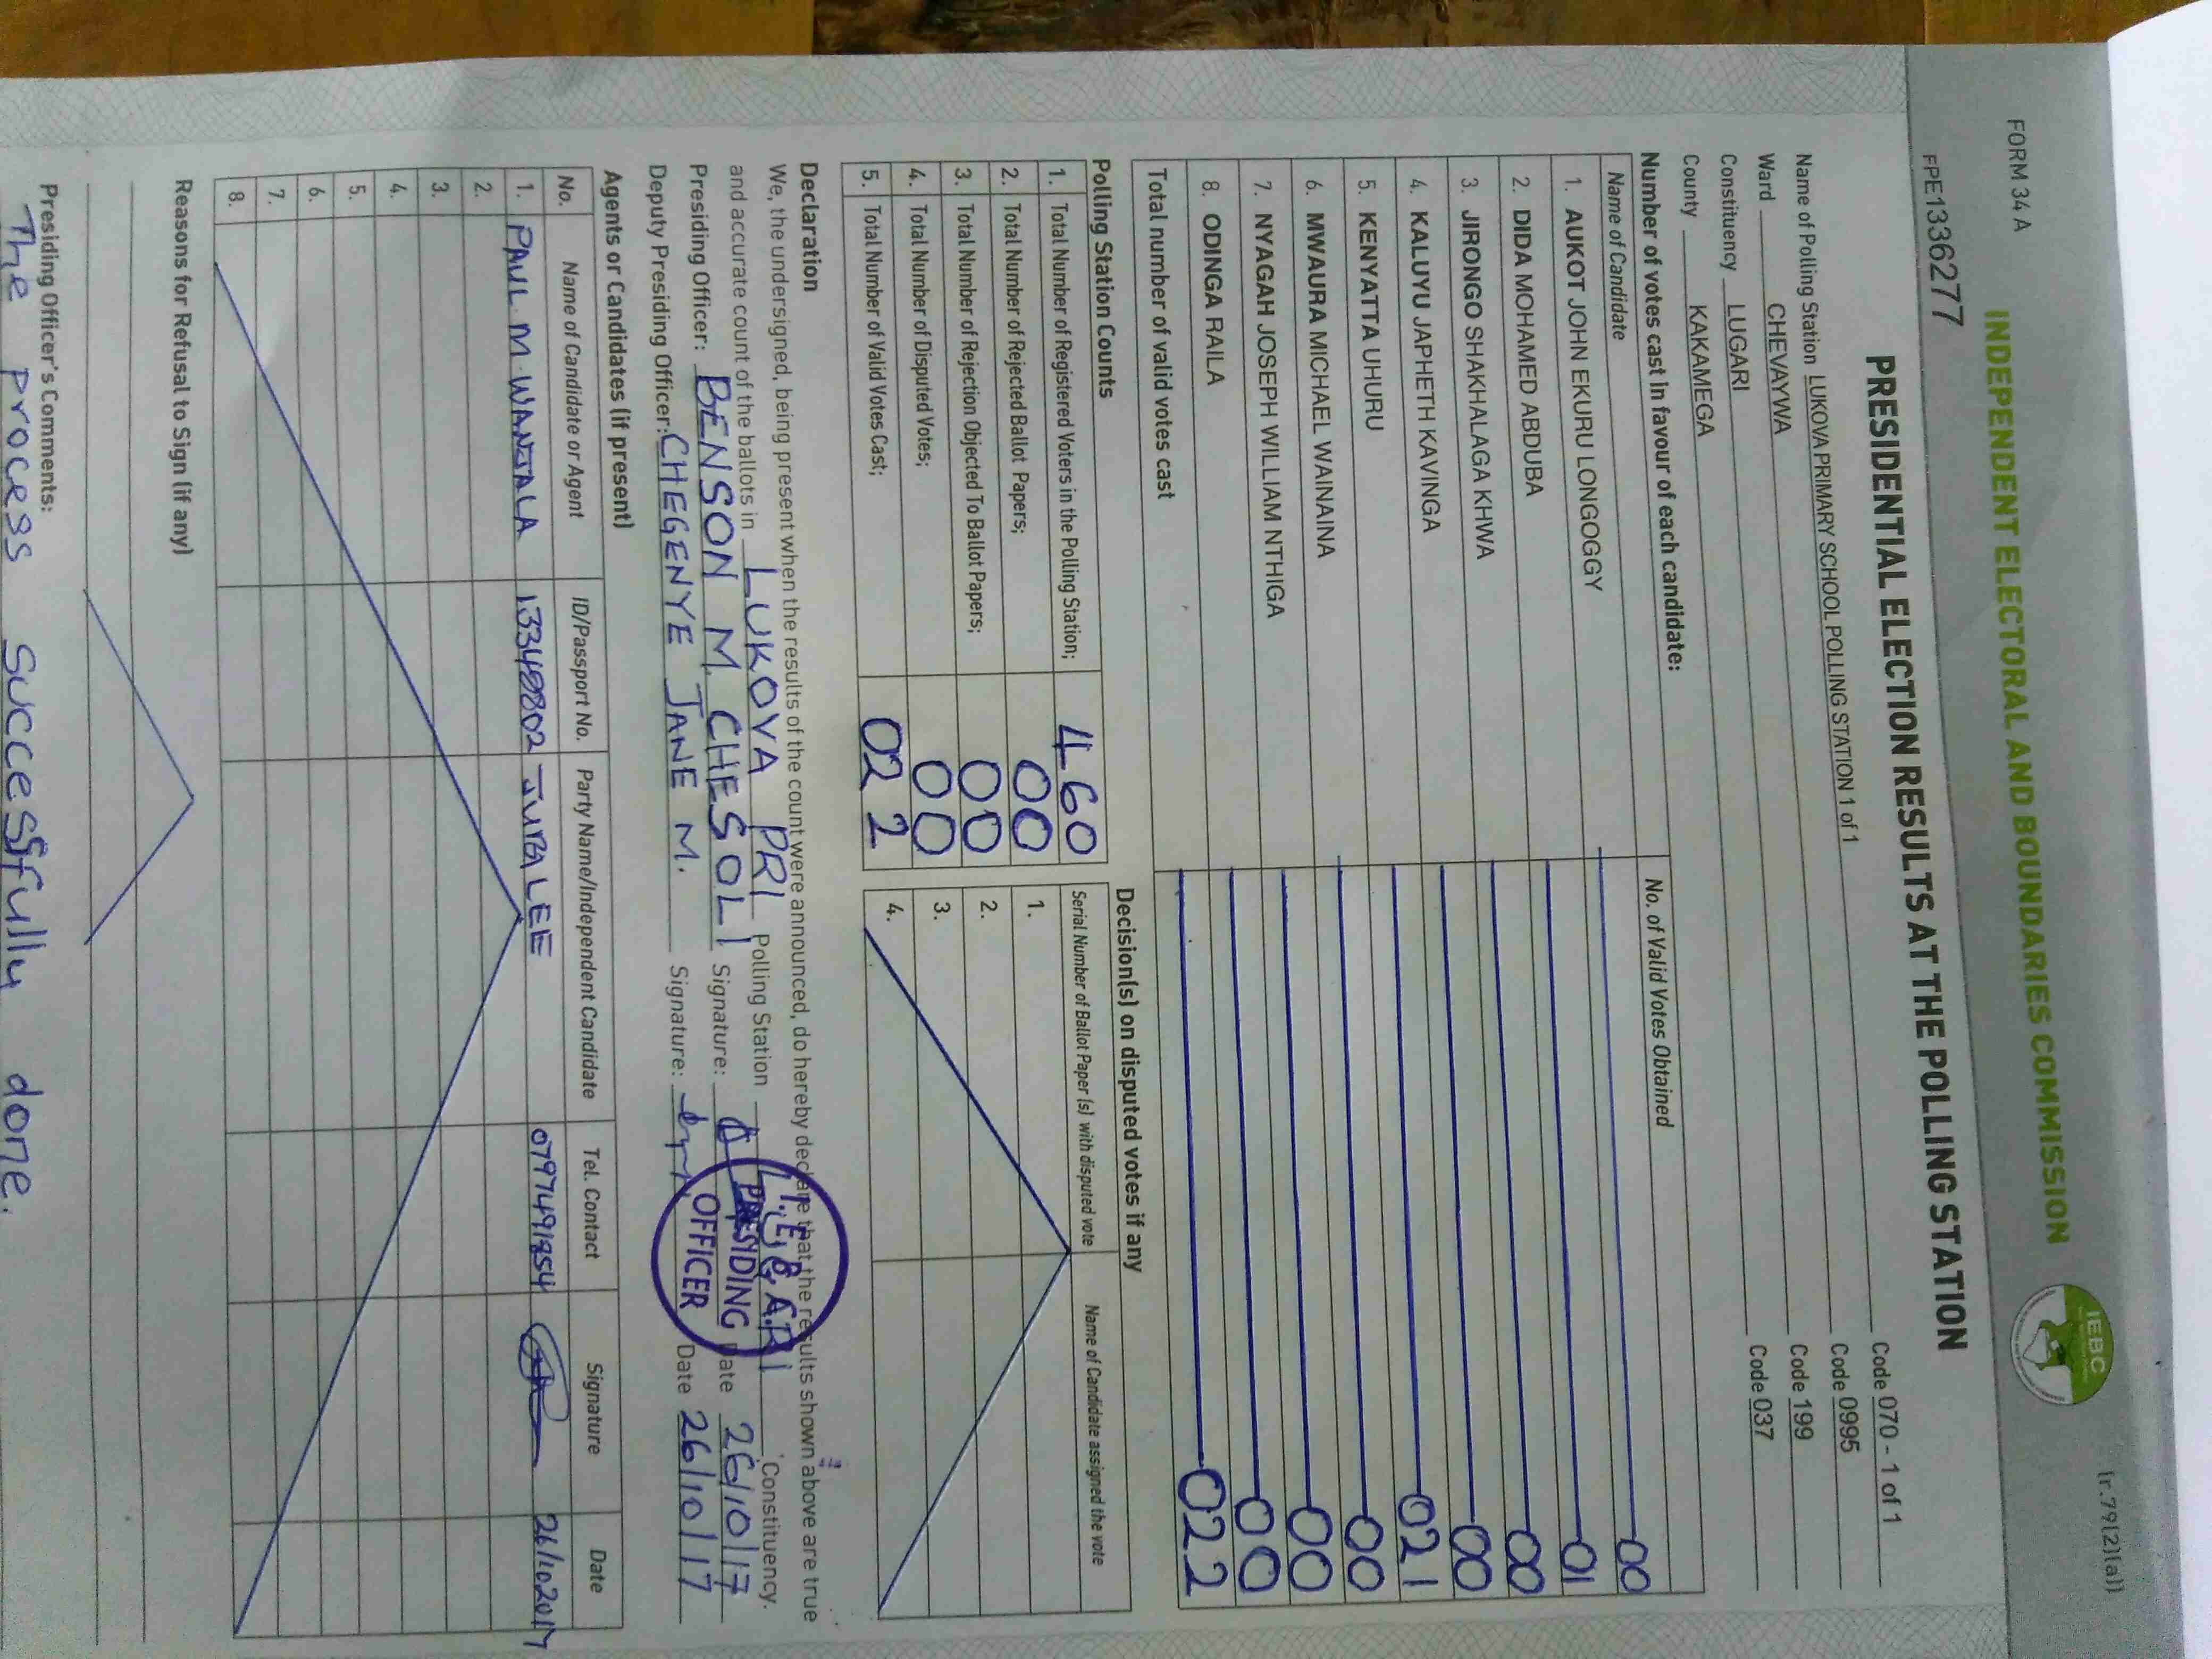 FORM 34 A
(r.79(2)(a))
INDEPENDENT ELECTORAL AND BOUNDARIES COMMISSION
IEBC
FPE1336277
PRESIDENTIAL ELECTION RESULTS AT THE POLLING STATION
Name of Polling Station LUKOVA PRIMARY SCHOOL POLLING STATION 1 of 1 Code 070 - 1 of 1
Ward CHEVAYWA Code 0995
Constituency LUGARI Code 199
County KAKAMEGA Code 037
Number of votes cast in favour of each candidate:
Name of Candidate No. of Valid Votes Obtained
1. AUKOT JOHN EKURU LONGOGGY 00
2. DIDA MOHAMED ABDUBA 01
3. JIRONGO SHAKHALAGA KHWA 00
4. KALUYU JAPHETH KAVINGA 00
5. KENYATTA UHURU 021
6. MWAURA MICHAEL WAINAINA 00
7. NYAGAH JOSEPH WILLIAM NTHIGA 00
8. ODINGA RAILA 00
Total number of valid votes cast 022
Polling Station Counts
1. Total Number of Registered Voters in the Polling Station; 460
2. Total Number of Rejected Ballot Papers; 00
3. Total Number of Rejection Objected To Ballot Papers; 00
4. Total Number of Disputed Votes; 00
5. Total Number of Valid Votes Cast; 022
Decision(s) on disputed votes if any
Serial Number of Ballot Paper (s) with disputed vote Name of Candidate assigned the vote
1.
2.
3.
4.
Declaration
We, the undersigned, being present when the results of the count were announced, do hereby declare that the results shown above are true
and accurate count of the ballots in LUKOVA PRI Polling Station LUGARI Constituency.
Presiding Officer: BENSON M. CHESOLI Signature: Date 26/10/17
Deputy Presiding Officer: CHEGENYE JANE M. Signature: Date 26/10/17
PRESIDING
OFFICER
Agents or Candidates (if present)
No. Name of Candidate or Agent ID/Passport No. Party Name/Independent Candidate Tel. Contact Signature Date
1. PAUL M. WANJALA 13348802 JUBALEE 0797491854 26/10/2017
2.
3.
4.
5.
6.
7.
8.
Reasons for Refusal to Sign (if any)
Presiding Officer's Comments:
The process successfully done.